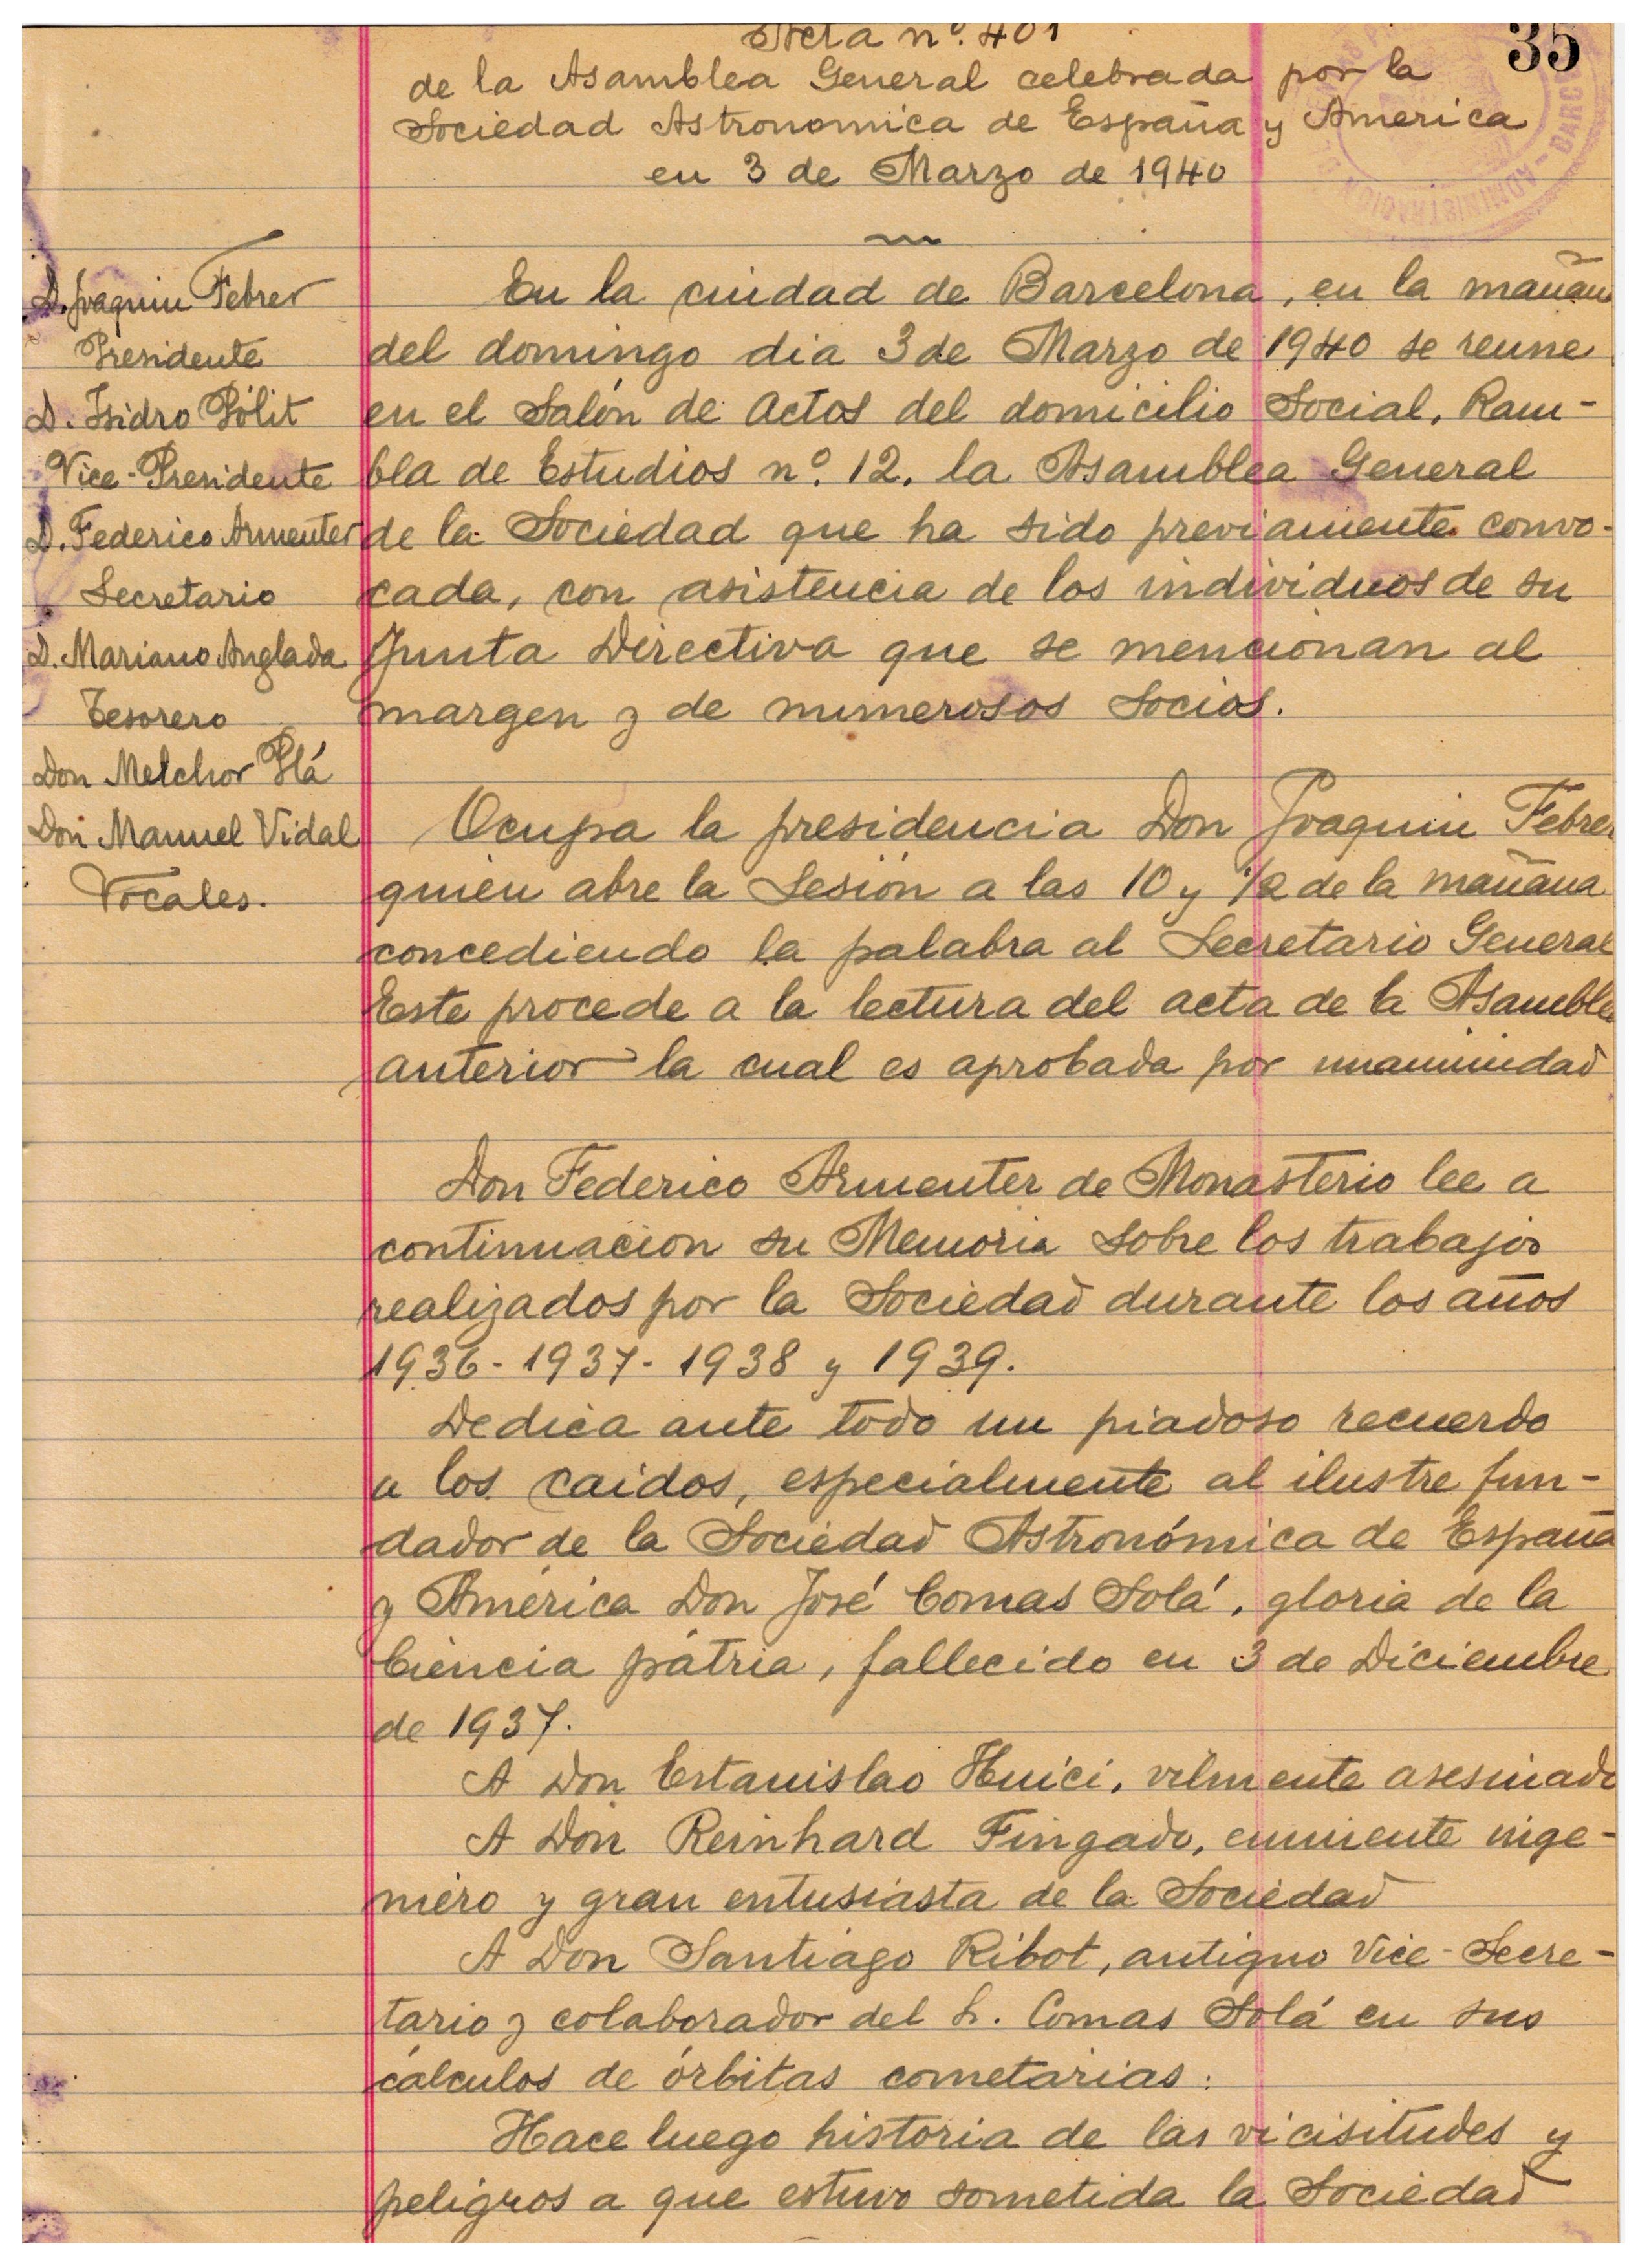 Acta nº. 401
35
de la Asamblea General celebrada por la
Sociedad Astronomica de España y America
en 3 de Marzo de 1940
ADMINISTRACION
BARC
D. Joaquin Febrer
Presidente
D. Isidro Pólit
Vice-Presidente
D. Federico Armenter
Secretario
D. Mariano Anglada
Tesorero
Don Melchor Plá
Don Manuel Vidal
Vocales.
En la ciudad de Barcelona, en la mañana
del domingo dia 3 de Marzo de 1940 se reune
en el Salón de Actos del domicilio Social, Ram-
bla de Estudios nº. 12, la Asamblea General
de la Sociedad que ha sido previamente convo-
cada, con asistencia de los individuos de su
Junta Directiva que se mencionan al
margen y de numerosos Socios.
Ocupa la presidencia Don Joaquin Febrer
quien abre la Sesión a las 10 y 1/2 de la mañana
concediendo la palabra al Secretario General
Este procede a la lectura del acta de la Asamblea
anterior la cual es aprobada por unanimidad
Don Federico Armenter de Monasterio lee a
continuación su Memoria sobre los trabajos
realizados por la Sociedad durante los años
1936-1937-1938 y 1939.
Dedica ante todo un piadoso recuerdo
a los caidos, especialmente al ilustre fun-
dador de la Sociedad Astronómica de España
y América Don José Comas Solá, gloria de la
Ciencia pátria, fallecido en 3 de Diciembre
de 1937.
A Don Estanislao Huici, vilmente asesinado
A Don Reinhard Fingado, eminente inge-
niero y gran entusiasta de la Sociedad
A Don Santiago Ribot, antiguo Vice-Secre-
tario y colaborador del S. Comas Solá en sus
cálculos de órbitas cometarias.
Hace luego historia de las vicisitudes y
peligros a que estuvo sometida la Sociedad